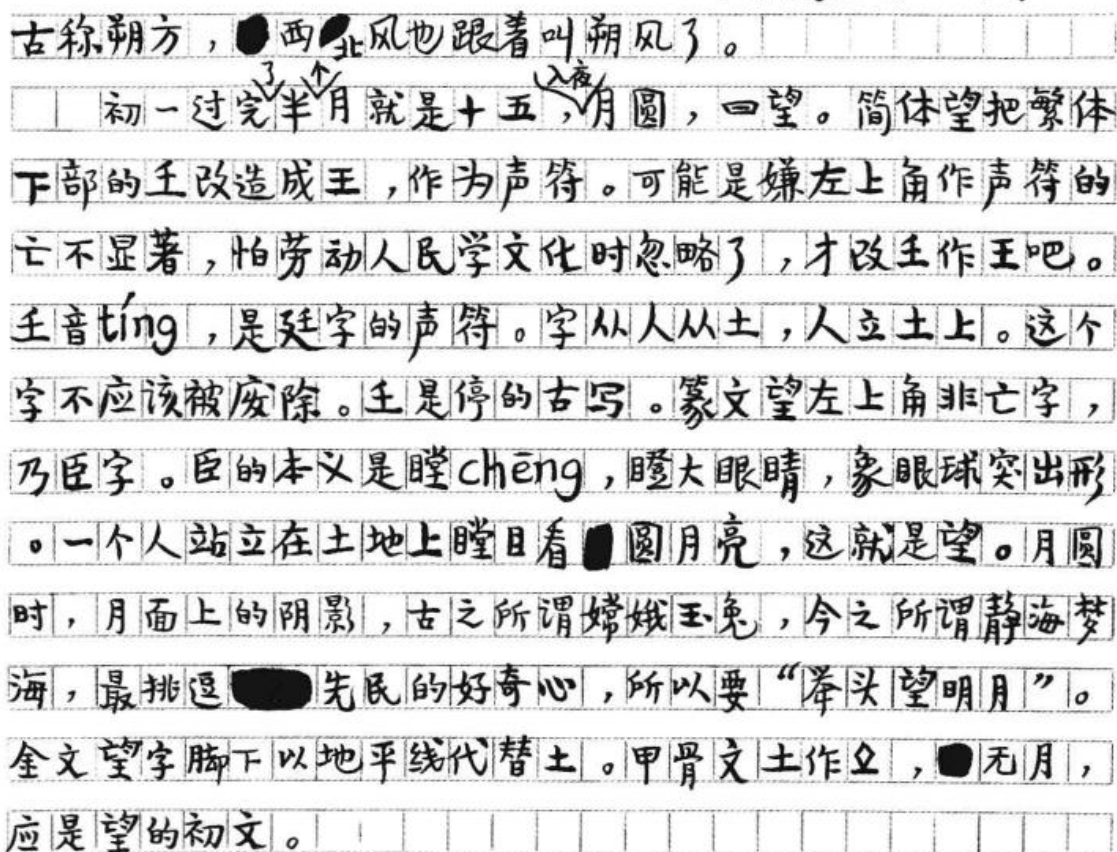 古称朔方，西北风也跟着叫朔风了。
初一过完了半个月就是十五，入夜月圆，曰望。简体望把繁体
下部的𡈼改造成王，作为声符。可能是嫌左上角作声符的
亡不显著，怕劳动人民学文化时忽略了，才改𡈼作王吧。
𡈼音tíng，是廷字的声符。字从人从土，人立土上。这个
字不应该被废除。𡈼是停的古写。篆文望左上角非亡字，
乃臣字。臣的本义是瞠chēng，瞪大眼睛，象眼球突出形
。一个人站立在土地上瞠目看圆月亮，这就是望。月圆
时，月面上的阴影，古之所谓嫦娥玉兔，今之所谓静海梦
海，最挑逗先民的好奇心，所以要“举头望明月”。
金文望字脚下以地平线代替土。甲骨文土作，无月，
应是望的初文。